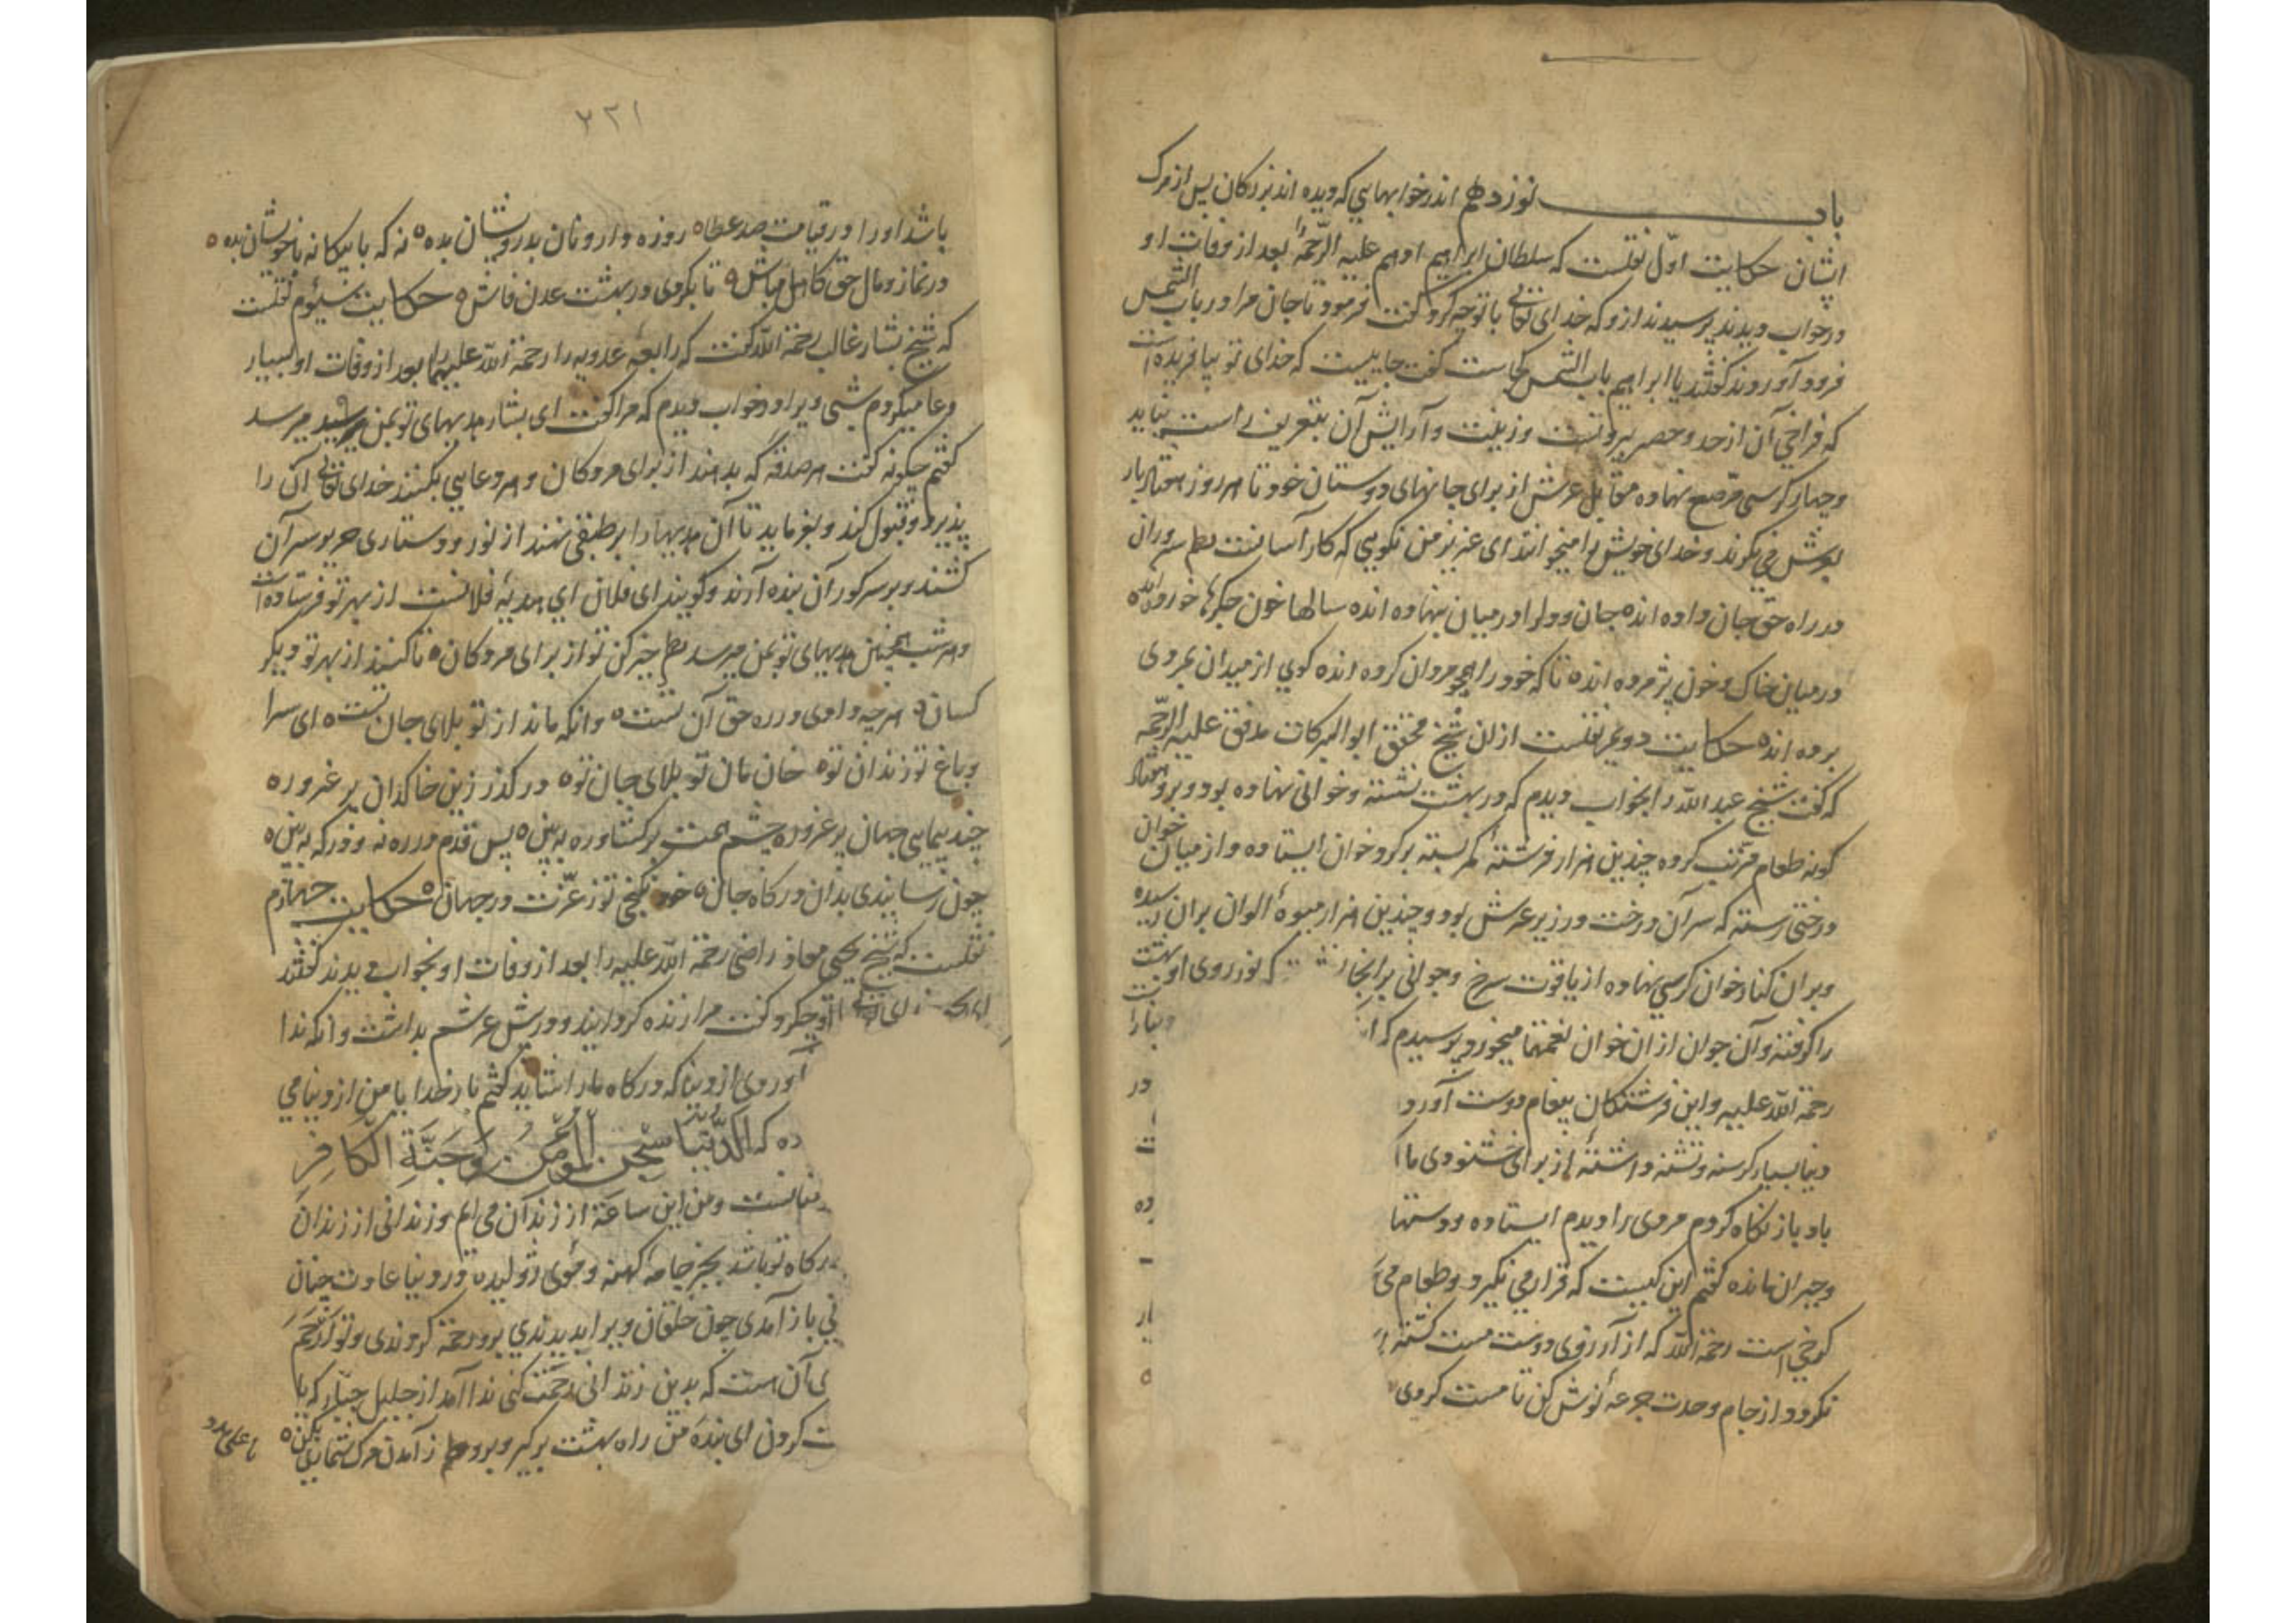 باب نوزدهم اندر خوابهایی که دیده اند بزرکان پس از مرک
ایشان حکایت اول نقلست که سلطان ابراهیم ادهم علیه الرحمة بعد از وفات او
در خواب دیدند پرسیدند ازو که خدای تعالی با تو چه کرد کفت فرمود تا جان مرا در باب الشمس
فرود آوردند کفتند یا ابراهیم باب الشمس کجاست کفت جاییست که خدای تو بیافریده است
که فراخی آن از حد و حصر بیرونست و زینت و آرایش آن بتعریف راست نیاید
و چهار کرسی مرصع نهاده مقابل عرش از برای جانهای دوستان خود تا هر روز هفتاد بار
بعرش می نکرند و خدای خویش را میخوانند ای عزیز من نکویی که کار آسانست نظم سروران
در راه حق جان داده اند ه جان و دل را در میان بنهاده اند ه سالها خون جکرها خورده اند ه
در میان خاک و خون پژمرده اند ه تا که خود را همچو مردان کرده اند ه کوی از میدان بمردی
برده اند ه حکایت دویم نقلست از ان شیخ محقق ابو البرکات مدقق علیه الرحمه
که کفت شیخ عبد الله را بخواب دیدم که در بهشت نشسته و خوانی نهاده بود و برو هفتاد
کونه طعام مرتب کرده چندین هزار فرشته کمر بسته بر کرد خوان ایستاده و از میان خوان
درختی رسته که سر آن درخت در زیر عرش بود و چندین هزار میوه الوان بران رسیده
و بران کنار خوان کرسی نهاده از یاقوت سرخ و جوانی بر انجا که نور روی او بهشت
را کرفته و آن جوان از ان خوان نعمتها میخورد پرسیدم که
رحمة الله علیه و این فرشتکان پیغام دوست آورد در
دنیا بسیار کرسنه و تشنه داشته از برای خشنودی ما
باد باز نکاه کردم مردی را دیدم ایستاده و دستها ده
و حیران مانده کفتم این کیست که قرار می نکیرد و طعام
کرخی است رحمة الله که از آرزوی دوست مست کشته
نکرود از جام وحدت جرعه نوش کن تا مست کردی ه
۲۲۱
باشد او را در قیامت صد عطا ه روزه دار و نان بدرویشان بده ه نه که با بیکانه با خویشان بده ه
در نماز و مال حق کاهل مباش ه تا بکردی در بهشت عدن فاش ه حکایت سیوم نقلست
که شیخ بشار غالب رحمة الله کفت که رابعه عدویه را رحمة الله علیهما بعد از وفات او بسیار
دعا میکردم شبی ویرا در خواب دیدم که مرا کفت ای بشار هدیهای تو بمن میرسد
کفتم چکونه کفت هر صدقه که بدهند از برای مردکان و هر دعایی بکنند خدای تعالی آن را
پذیرد و قبول کند و بفرماید تا آن هدیها را بر طبقی نهند از نور و دستاری حریر بر سر آن
کشند و بر سر کور آن بنده آرند و کویند ای فلان این هدیه فلانست از بهر تو فرستاده است
و هر شب همچنین هدیهای تو بمن میرسد نظم خیر کن تو از برای مردکان ه تا کنند از بهر تو دیکر
کسان ه هر چه دادی در ره حق آن تست ه وانکه ماند از تو بلای جان تست ه ای سرا
و باغ تو زندان تو ه خان مان تو بلای جان تو ه در کذر زین خاکدان پر غرور ه
چند پیمایی جهان پر غرور ه چشم همت بر کشا و ره ببین ه پس قدم در ره نه و درکه ببین ه
چون رسانیدی بدان درکاه جان ه خود نکنجی تو ز عزت در جهان ه حکایت چهارم
نقلست که شیخ یحیی معاذ راضی رحمة الله علیه را بعد از وفات او بخواب دیدند کفتند
خدای تعالی با تو چه کرد کفت مرا زنده کردانید و در پیش عرشم بداشت وانکه ندا
آوردی از دنیا که درکاه ما را شاید کفتم بار خدایا من از دنیا می
ده که الدنیا سجن المؤمن وجنة الکافر
و من این ساعة از زندان می ایم و زندانی از زندان
درکاه تو باشد بجز جامه کهنه و موی ژولیده و در دنیا عادت چنان
نی باز آمدی چون خلقان ویرا بدیدندی برو رحمة کردندی و تو ارحم
ی آن است که بدین زندانی رحمت کنی ندا آمد از جلیل جبار که یا
ت کردن ای بنده من راه بهشت بر کیر و برو نظم ز آمدن مرک شماری بکن ه